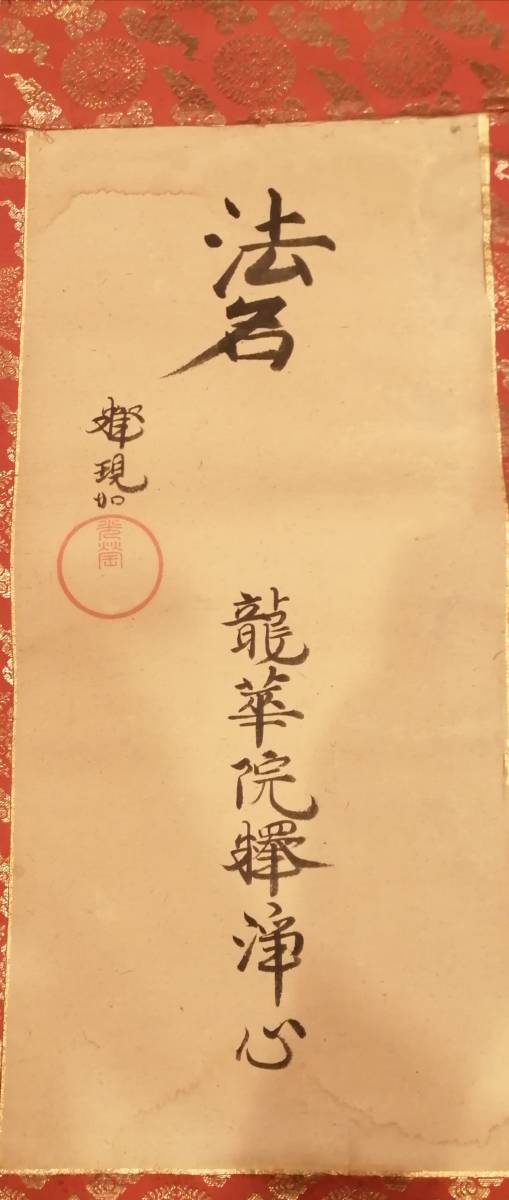 法名
龍華院釋浄心
釋現如
光瑩